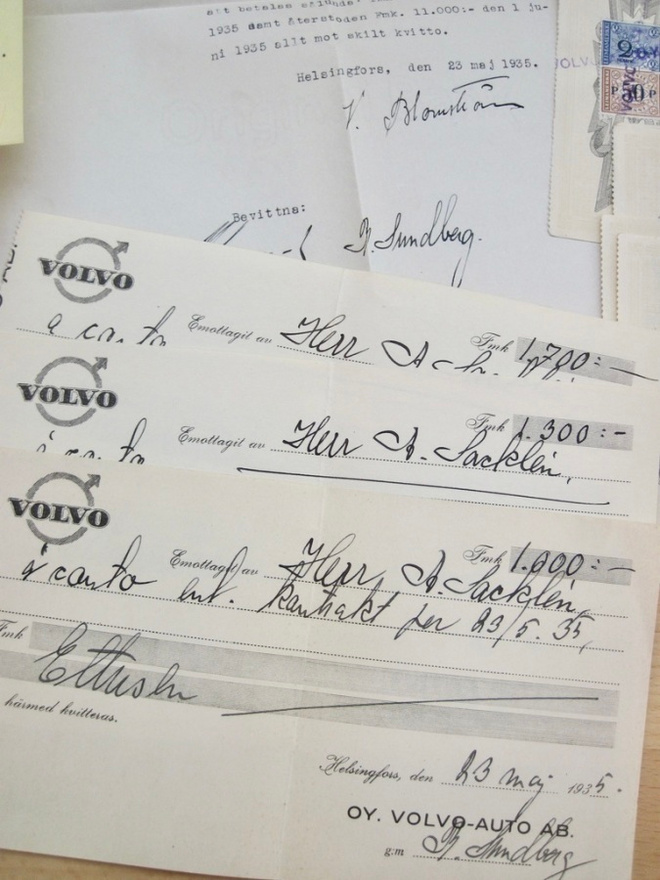 1935 samt återstoden Fmk. 11.000:- den 1 ju-
ni 1935 allt mot skilt kvitto.
Helsingfors, den 23 maj 1935.
VOLVO
2
P 50 P
V. Blomström
Bevittna:
R. Sundberg.
VOLVO
Emottagit av Herr A Fmk 1.700:-
a conto
VOLVO
Emottagit av Herr A. Sacklén, Fmk 1.300:-
à conto
VOLVO
Emottagit av Herr A. Sacklén, Fmk 1.000:-
à conto enl. kontrakt per 23/5. 35,
Fmk Ettusen
härmed kvitteras.
Helsingfors, den 23 maj 1935.
OY. VOLVO-AUTO AB.
g:m R. Sundberg